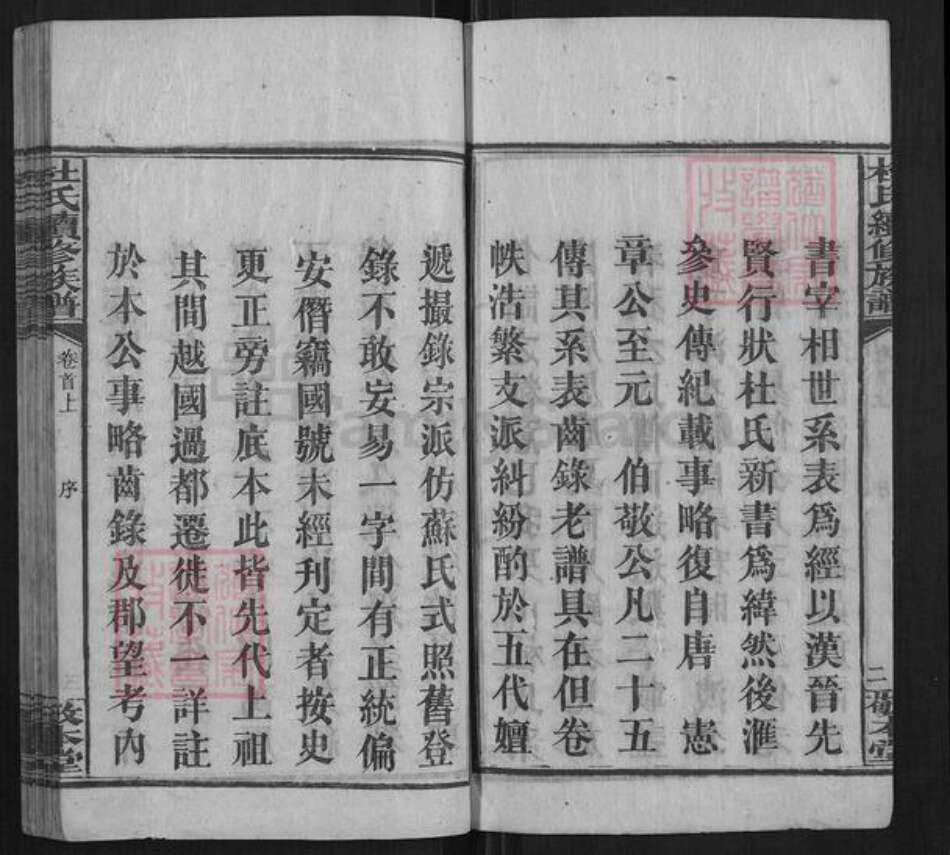 杜氏續修族譜
二
敬本堂
書宰相世系表爲經以漢晉先
賢行狀杜氏新書爲緯然後滙
參史傳紀載事略復自唐 憲
章公至元 伯敬公凡二十五
傳其系表齒錄老譜具在但卷
帙浩繁支派糾紛酌於五代嬗
遞撮錄宗派仿蘇氏式照舊登
錄不敢妄易一字間有正統偏
安僭竊國號未經刋定者按史
更正旁註底本此皆先代上祖
其間越國過都遷徙不一詳註
於本公事略齒錄及郡望考內
杜氏續修族譜
卷首上
序
敬本堂